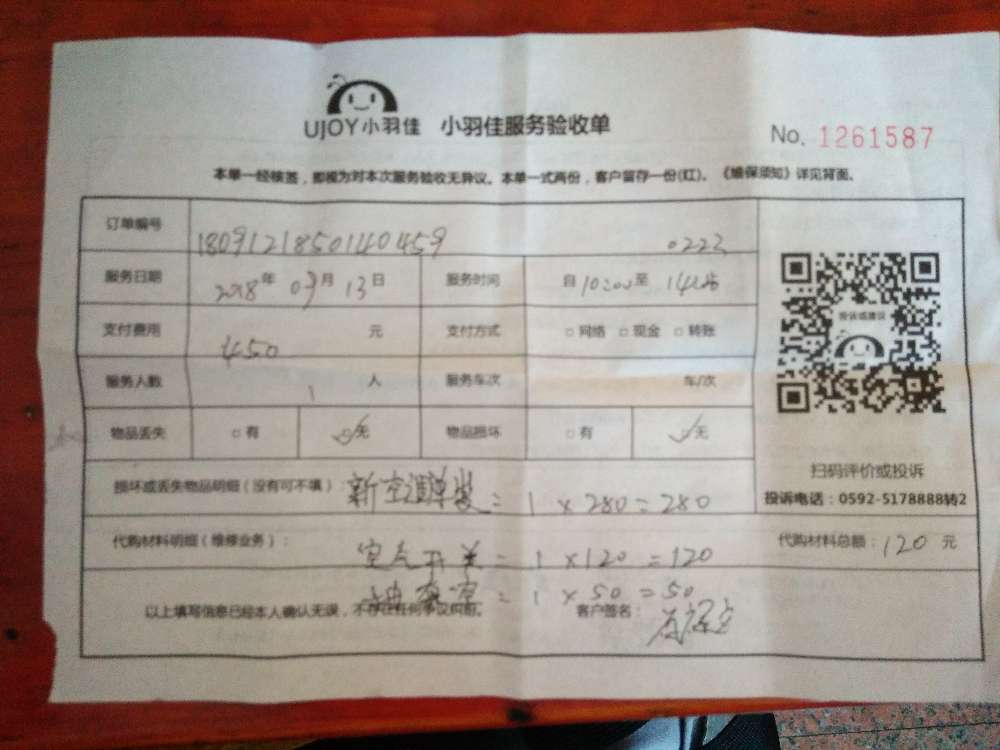 UJOY小羽佳 小羽佳服务验收单
No. 1261587
本单一经核签，即视为对本次服务验收无异议。本单一式两份，客户留存一份(红)。《维保须知》详见背面。
订单编号 180912185014 0459 0223
服务日期 2018年 09月 13日 服务时间 自 10:00 至
支付费用 450 元 支付方式 □网络 □现金 □转账
服务人数 1 人 服务车次 车/次
物品丢失 □有 □无 物品损坏 □有 □无
投诉或建议
扫码评价或投诉
投诉电话：0592-5178888转2
损坏或丢失物品明细（没有可不填）： 新空调单装 = 1 × 280 = 280
代购材料明细（维修业务）： 代购材料总额：120 元
空气开关 = 1 × 120 = 120
= 1 × 50 = 50
以上填写信息已经本人确认无误，不存在任何争议纠纷。 客户签名：